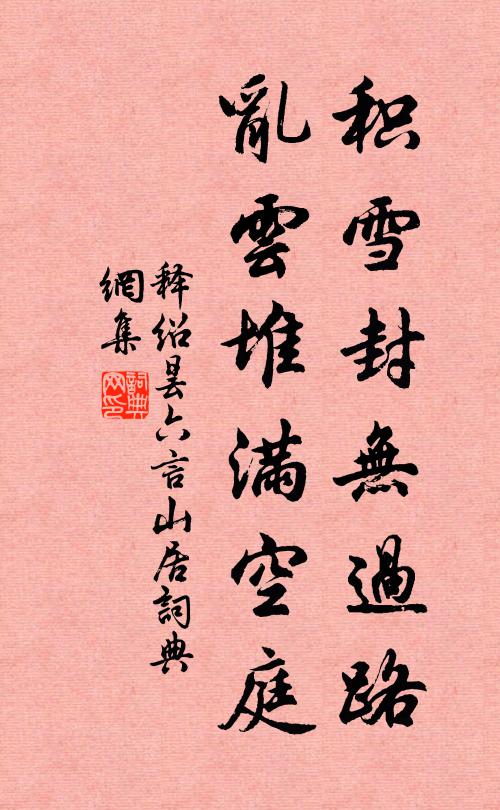 积雪封無過路
亂雲堆滿空庭
释绍昙六言山居詞典
網集
詞典網印